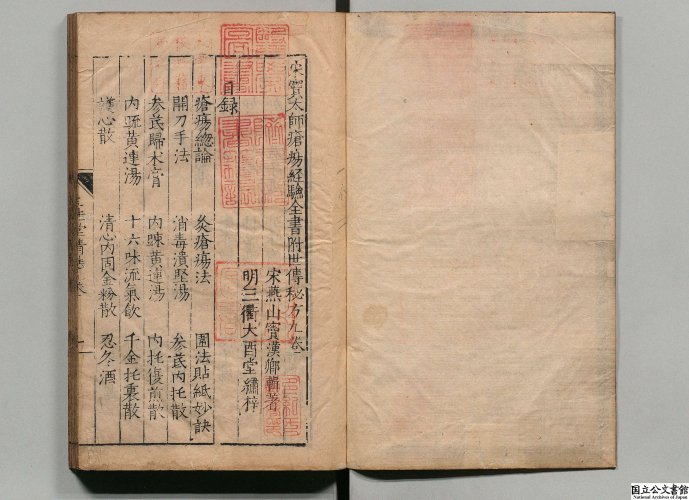 宋竇太師瘡瘍經驗全書附世傳秘方九卷
宋燕山竇漢卿輯著
明三衢大酉堂繡梓
目録
瘡瘍總論 灸瘡瘍法 圍法貼紙妙訣
開刀手法 消毒潰堅湯 參芪内托散
參芪歸朮膏 内踈黃連湯 内托復煎散
内疏黃連湯 十六味流氣飲 千金托裏散
護心散 清心内固金粉散 忍冬酒
国立公文書館
National Archives of Japan